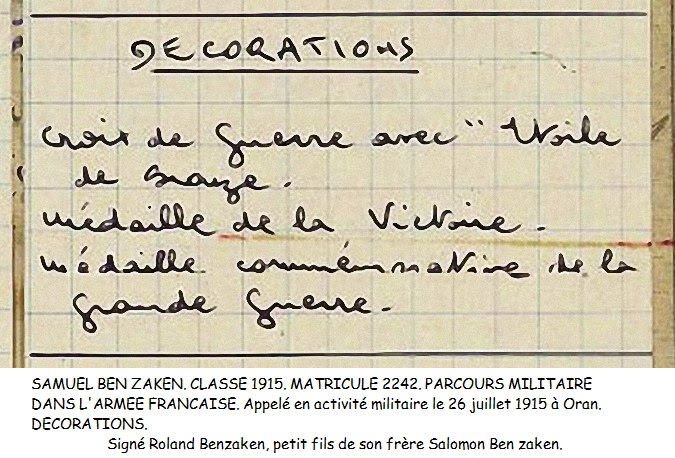 DECORATIONS
croix de guerre avec " Etoile
de bronze.
médaille de la Victoire.
médaille commémorative de la
grande guerre.
SAMUEL BEN ZAKEN. CLASSE 1915. MATRICULE 2242. PARCOURS MILITAIRE
DANS L'ARMEE FRANCAISE. Appelé en activité militaire le 26 juillet 1915 à Oran.
DECORATIONS.
Signé Roland Benzaken, petit fils de son frère Salomon Ben zaken.